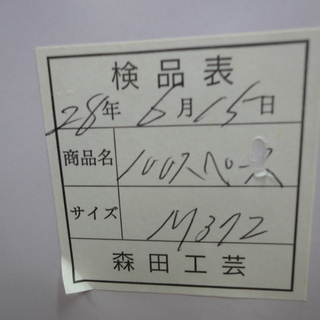 検品表
28年6月15日
商品名 100スペース
サイズ M372
森田工芸